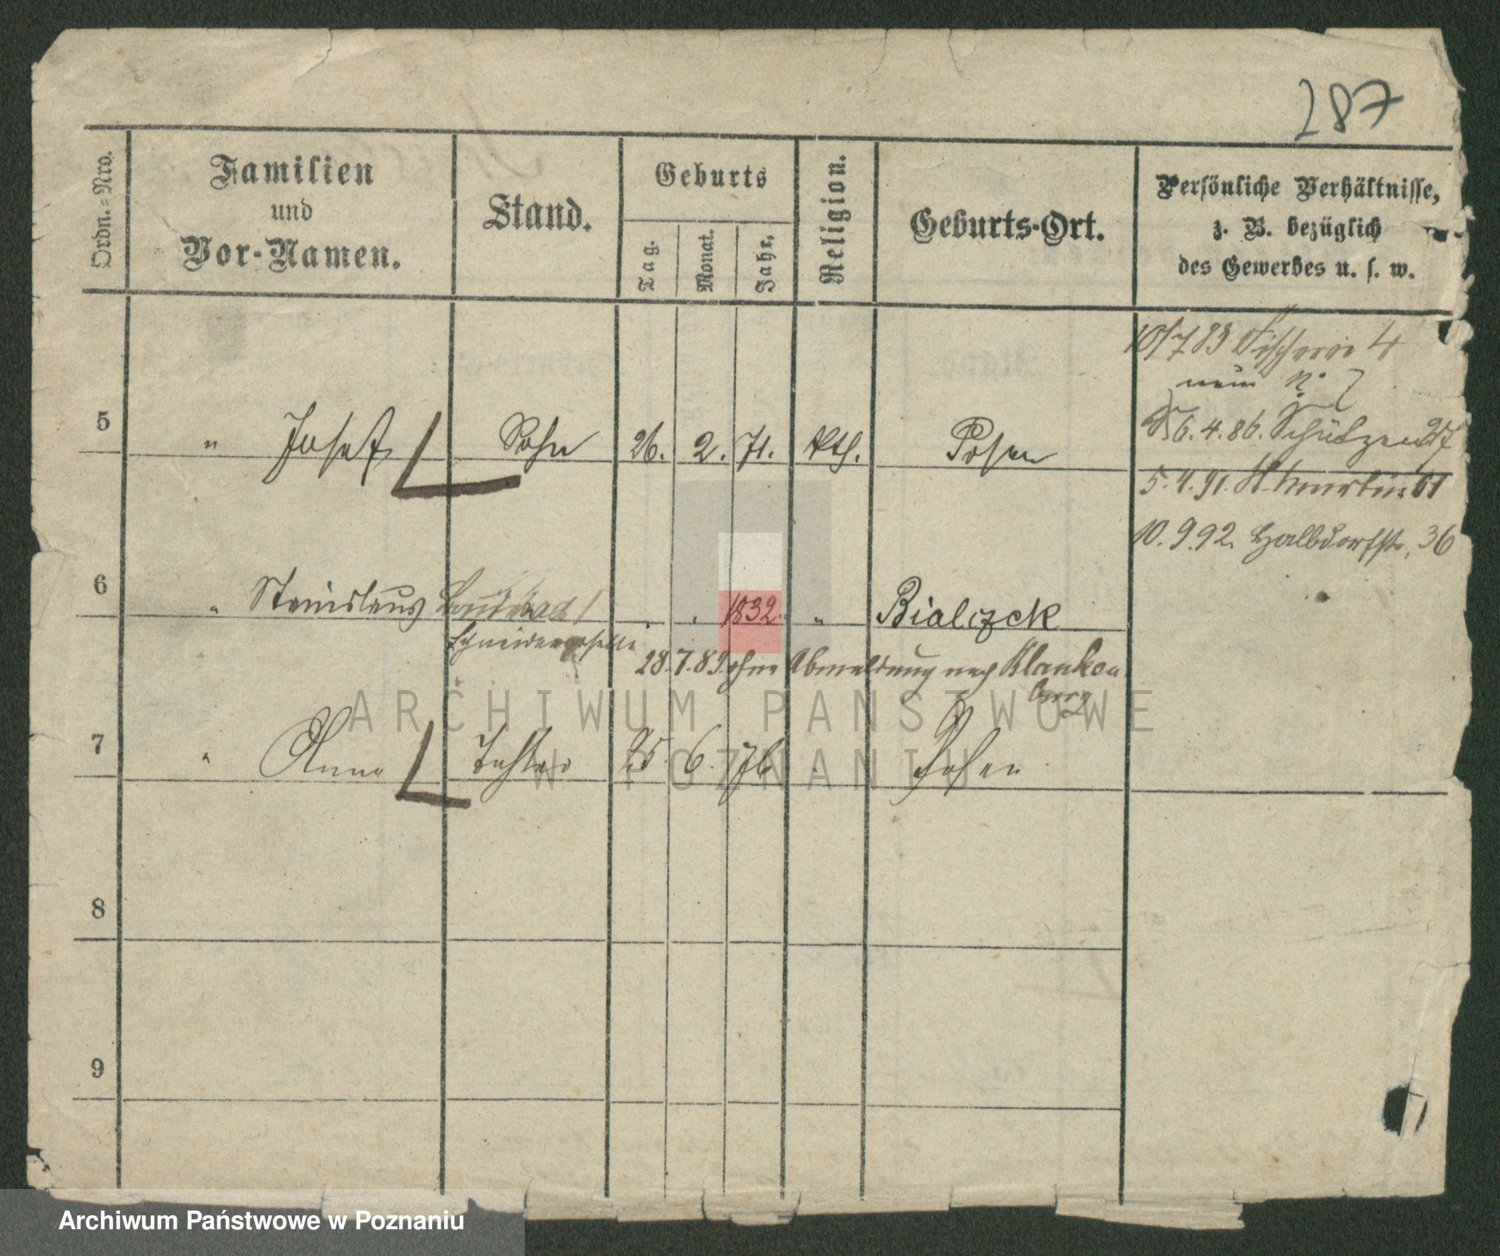 287
Ordn.-Nro.
Familien
und
Vor-Namen.
Stand.
Geburts
Tag.
Monat.
Jahr.
Religion.
Geburts-Ort.
Persönliche Verhältnisse,
z. B. bezüglich
des Gewerbes u. s. w.
10/7 83 Fischerei 4
5 " Josef Sohn 26. 2. 71. kth. Posen
6.4.86. Schützen 27
5.4.91. St. Martin 61
10.9.92. Halbdorfstr. 36
6 " Stanislaus 1832 " Bialczek
Schneidergeselle
28.7.83 ohne Abmeldung nach Blanken
berg
7 " Anna Tochter 25. 6. 76 Posen
8
9
ARCHIWUM PAŃSTWOWE
W POZNANIU
Archiwum Państwowe w Poznaniu